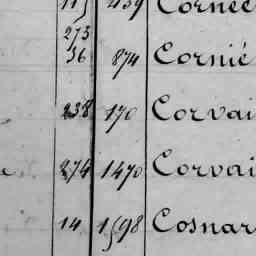 115 439 Cornée
273
36 874 Cornié
238 170 Corvai
274 1470 Corvai
14 1598 Cosnar